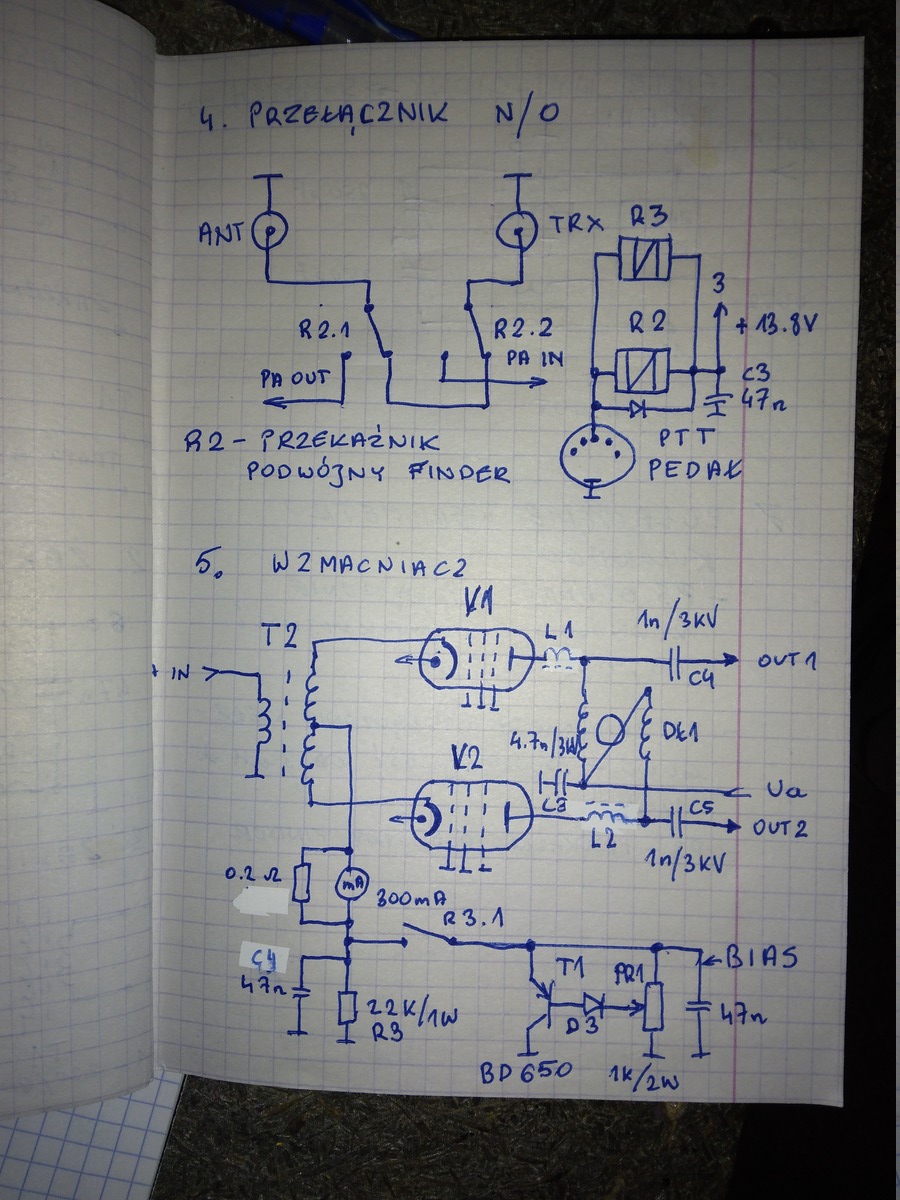 4. PRZEŁĄCZNIK N/O
ANT
TRX
R3
3
R2.1
R2.2
R2
+ 13.8V
PA OUT
PA IN
C3
47n
R2 - PRZEKAŹNIK
PODWÓJNY FINDER
PTT
PEDAŁ
5. WZMACNIACZ
V1
T2
L1
1n/3kV
+ IN
OUT1
C4
4.7n/3kV
Dł1
V2
Ua
C5
L2
OUT2
1n/3kV
0.2 Ω
mA
300mA
R3.1
C4
47n
22K/1W
R3
T1
PR1
BIAS
D3
47n
BD650
1K/2W